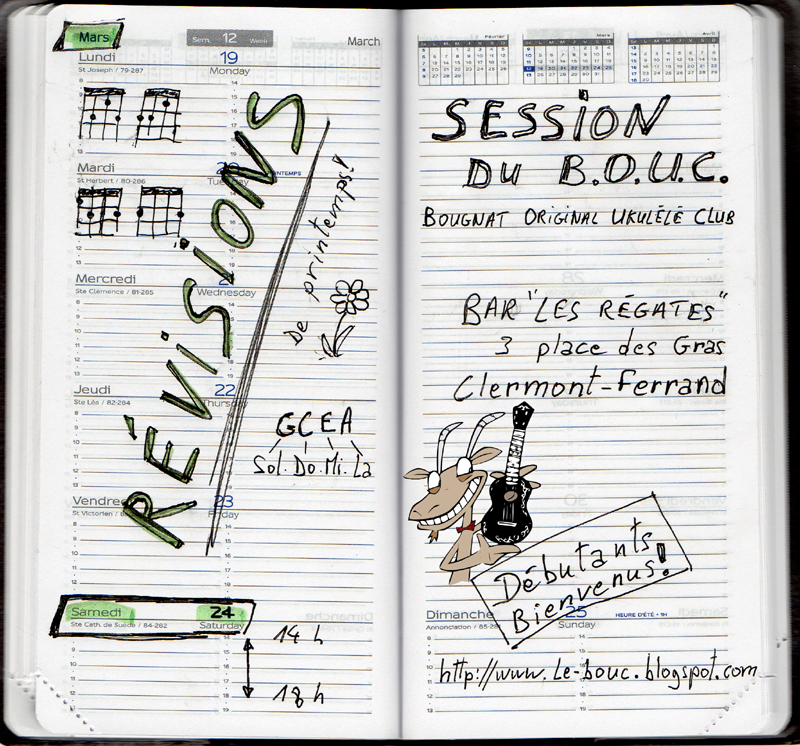 Mars
Sem. 12 Week
March
Lundi
19
St Joseph / 79-287
Monday
Mardi
20
St Herbert / 80-286
Tuesday
PRINTEMPS
Mercredi
21
Ste Clémence / 81-285
Wednesday
Jeudi
22
Ste Léa / 82-284
Thursday
Vendredi
23
St Victorien / 83-283
Friday
RÉViSiONS
de printemps!
G C E A
Sol. Do. Mi. La
Samedi
24
Ste Cath. de Suède / 84-282
Saturday
14 h
18 h
Février
Mars
Avril
SESSiON
DU B.O.U.C.
BOUGNAT ORIGINAL UKULÉLÉ CLUB
BAR "LES RÉGATES"
3 place des Gras
Clermont-Ferrand
Débutants
Bienvenus!
Dimanche
25
HEURE D'ÉTÉ + 1H
Annonciation / 85-281
Sunday
http://www.le-bouc.blogspot.com